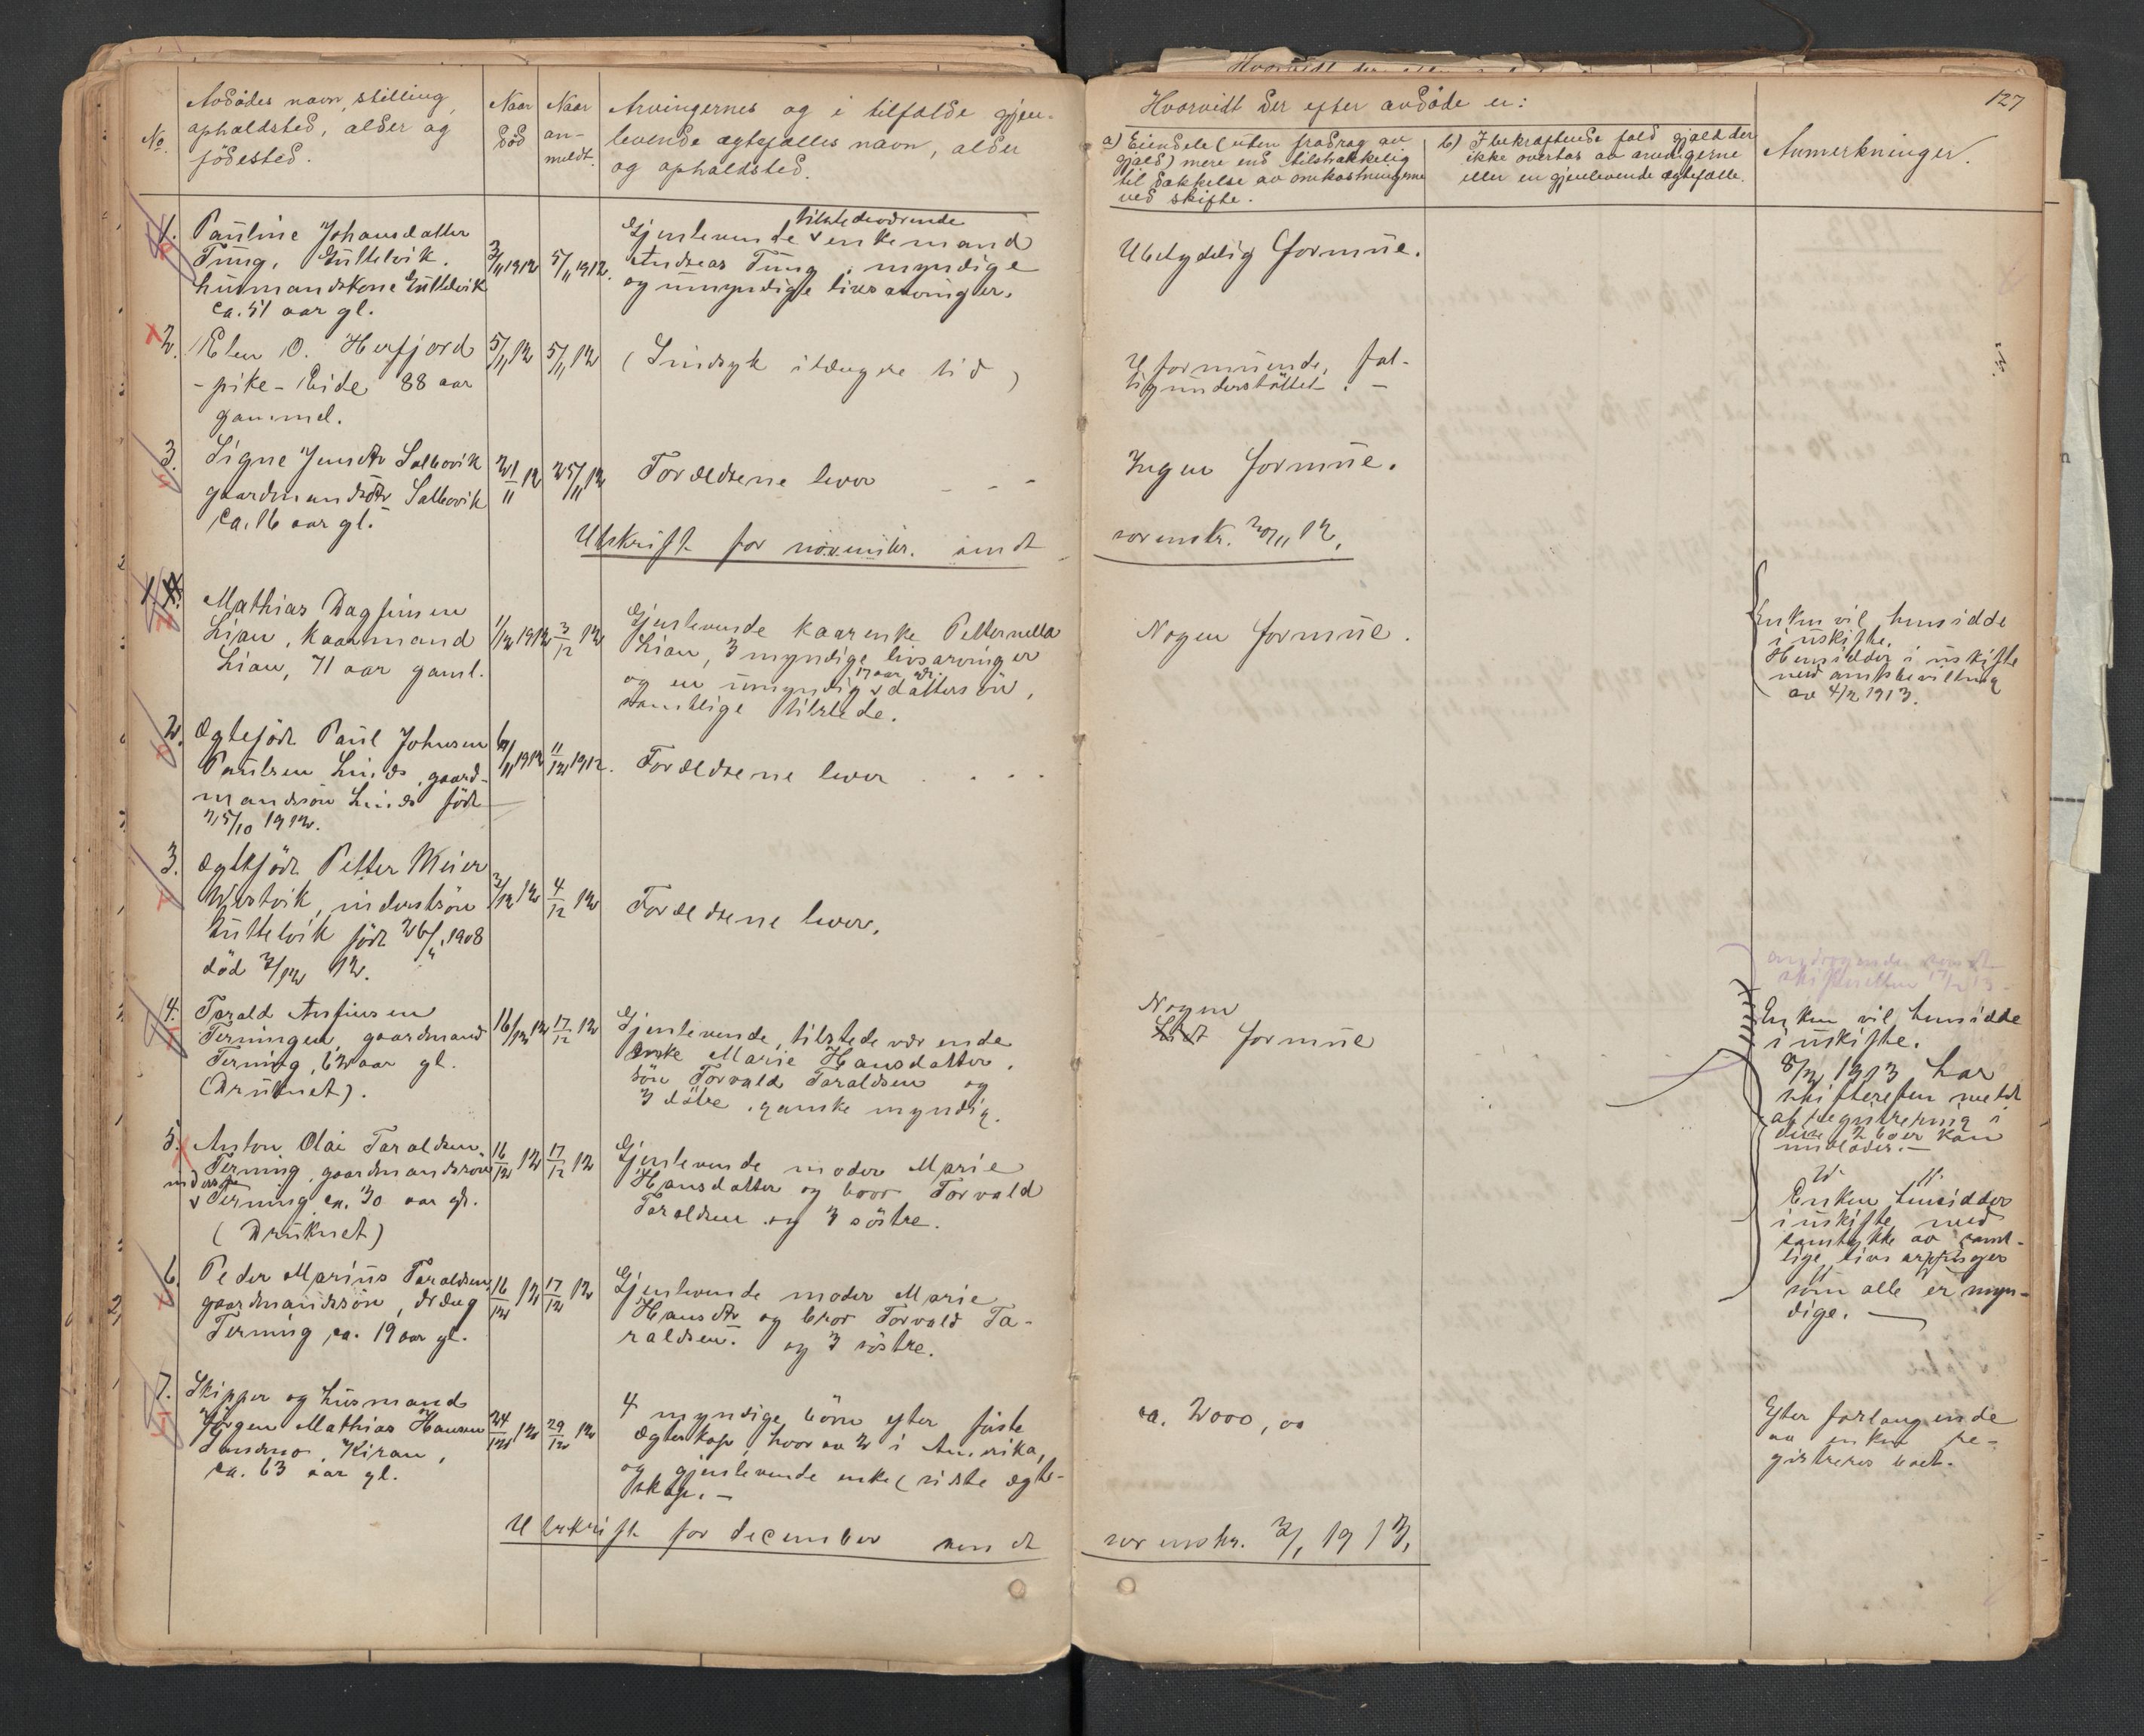 No.
Avdödes navn, stilling,
opholdsted, alder og
födested.
Naar
död
Naar
an-
meldt.
Arvingernes og i tilfælde gjen-
levende ægtefælles navn, alder
og opholdsted.
Hvorvidt der efter avdöde er:
a) Eiendele (uten fradrag av
gjæld) mere end tilstrækkelig
til dækkelse av omkostningerne
ved skifte.
b) I bekræftende fald gjæld der
ikke overtas av arvingerne
eller en gjenlevende ægtefælle.
Anmerkninger.
127
1.
Pauline Johansdatter
Tung, Guttelvik.
husmandskone Guttelvik
ca. 51 aar gl.
3/11 1912
5/11 1912.
tilstedeværende
Gjenlevende v enkemand
Andreas Tung, myndige
og umyndige livsarvinger.
Ubetydelig formue.
2.
Elen O. Herfjord
- pike - Eide 88 aar
gammel.
5/11 12
5/11 12
(Sindsyk i længere tid)
Uformuende, fat-
tigunderstöttet. -
3.
Signe Jensdtr Salbovik
gaardmandsdtr Salbovik
ca. 16 aar gl.
21/11 12
25/11 12
Forældrene lever - - -
Ingen formue.
Utskrift for novembr. sendt
sorenskr. 30/11 12.
1.
Mathias Dagfinsen
Lian, kaarmand
Lian, 71 aar gaml.
1/12 1912
3/12 12
Gjenlevende kaarenke Petternella
Lian, 3 myndige livsarvinger
17 aar gl.
og en umyndig v dattersön,
samtlige tilstede.
Nogen formue.
Enken vil hensidde
i uskifte.
Hensidder i uskifte
med amtsbevilling
av 4/2 1913.
2.
Ægtefödt Paul Johnsen
Paulsen Linds, gaard-
mandssön Linds födt
25/10 1912.
11/12 1912.
Forældrene lever . . . .
3.
Ægtefödt Petter Meier
Westvik, inderstsön
Guttelvik födt 26/4 1908
död 3/12 12.
3/12 12
4/12 12
Forældrene lever.
4.
Tarald Anfinsen
Terningen, gaardmand
Terning, 62 aar gl.
(Druknet).
16/12 12
17/12 12
Gjenlevende, tilstedeværende
enke Marie Hansdatter,
sön Torvald Taraldsen og
3 dötre, ganske myndig.
Nogen
Lidt formue
Enken vil hensidde
i uskifte.
8/2 1913 har
skifteretten meldt
at registrering i
disse 2 boer kan
undlades. -
Enken hensidder
i uskifte med
samtykke av samt-
lige livsarvinger
som alle er myn-
dige. -
5.
Anton Olai Taraldsen
Terning, gaardmandssön
inderst
v Terning ca. 30 aar gl.
(Druknet)
16/12 12
17/12 12
Gjenlevende moder Marie
Hansdatter og bror Torvald
Taraldsen og 3 söstre.
6.
Peder Marius Taraldsen,
gaardmandssön, dræng
Terning ca. 19 aar gl.
16/12 12
17/12 12
Gjenlevende moder Marie
Hansdtr og bror Torvald Ta-
raldsen. og 3 söstre.
7.
Skipper og husmand
Jörgen Mathias Hansen
Sandmo, Kiran,
ca. 63 aar gl.
24/12 12
29/12 12
4 myndige börn efter förste
ægteskap, hvorav 2 i Amerika,
og gjenlevende enke (sidste ægte-
skap. -
ca. 2000,00
Efter forlangende
av enken re-
gistreres boet.
Utskrift for december sendt
sorenskr. 2/1 1913.